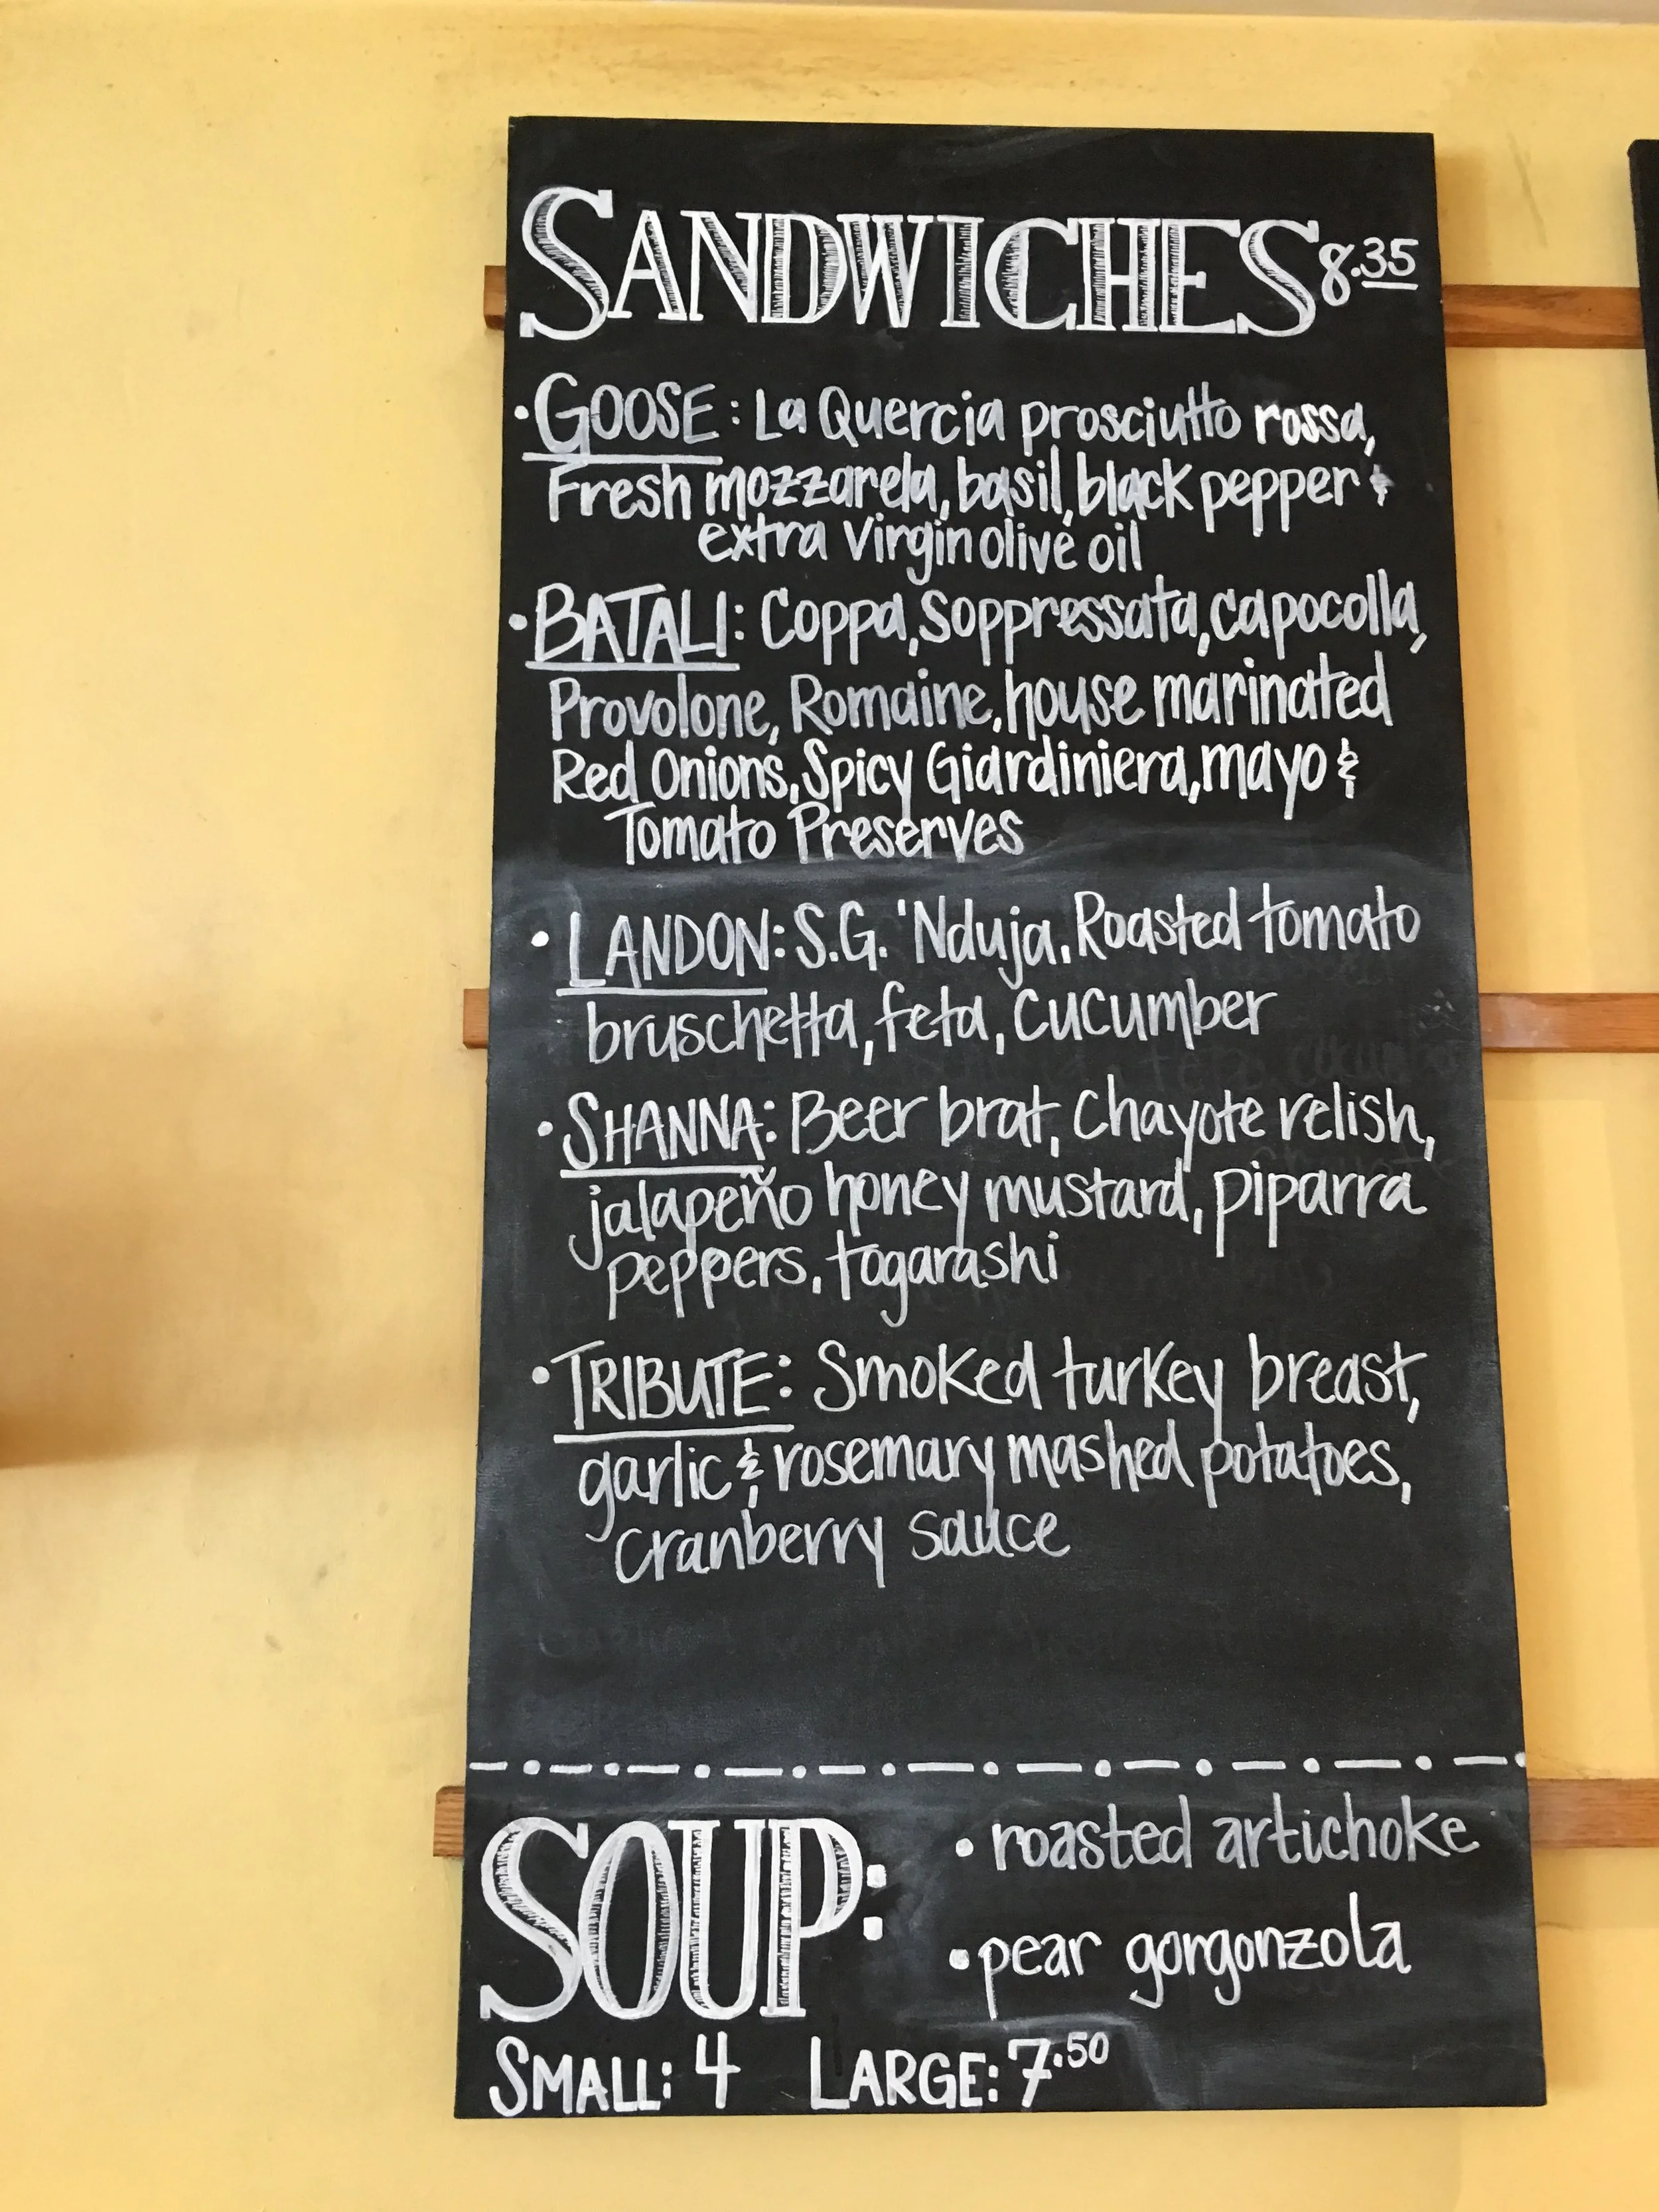 SANDWICHES 8.35
• GOOSE: La Quercia prosciutto rossa,
Fresh mozzarela, basil, black pepper &
extra Virgin olive oil
• BATALI: Coppa, Soppressata, capocolla,
Provolone, Romaine, house marinated
Red Onions, Spicy Giardiniera, mayo &
Tomato Preserves
• LANDON: S.G. 'Nduja, Roasted tomato
bruschetta, feta, cucumber
• SHANNA: Beer brat, Chayote relish,
jalapeño honey mustard, piparra
peppers, togarashi
• TRIBUTE: Smoked turkey breast,
garlic & rosemary mashed potatoes,
cranberry sauce
SOUP:
• roasted artichoke
• pear gorgonzola
SMALL: 4 LARGE: 7.50